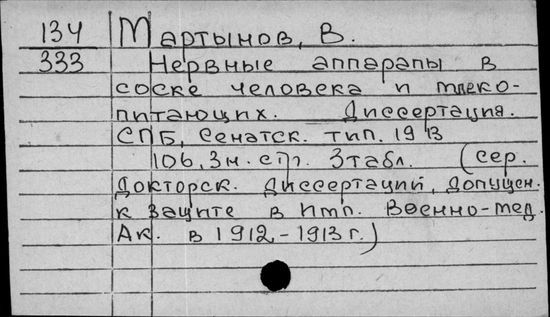 134 Мартынов, В.
333 Нервные аппараты в
соске человека и млеко-
питающих. Диссертация.
СПБ, Сенатск. тип. 1913
106, 3н. стр. 3табл. (сер.
Докторск. диссертаций, допущен.
к защите в Имп. Военно-мед.
Ак. в 1912-1913 г.)